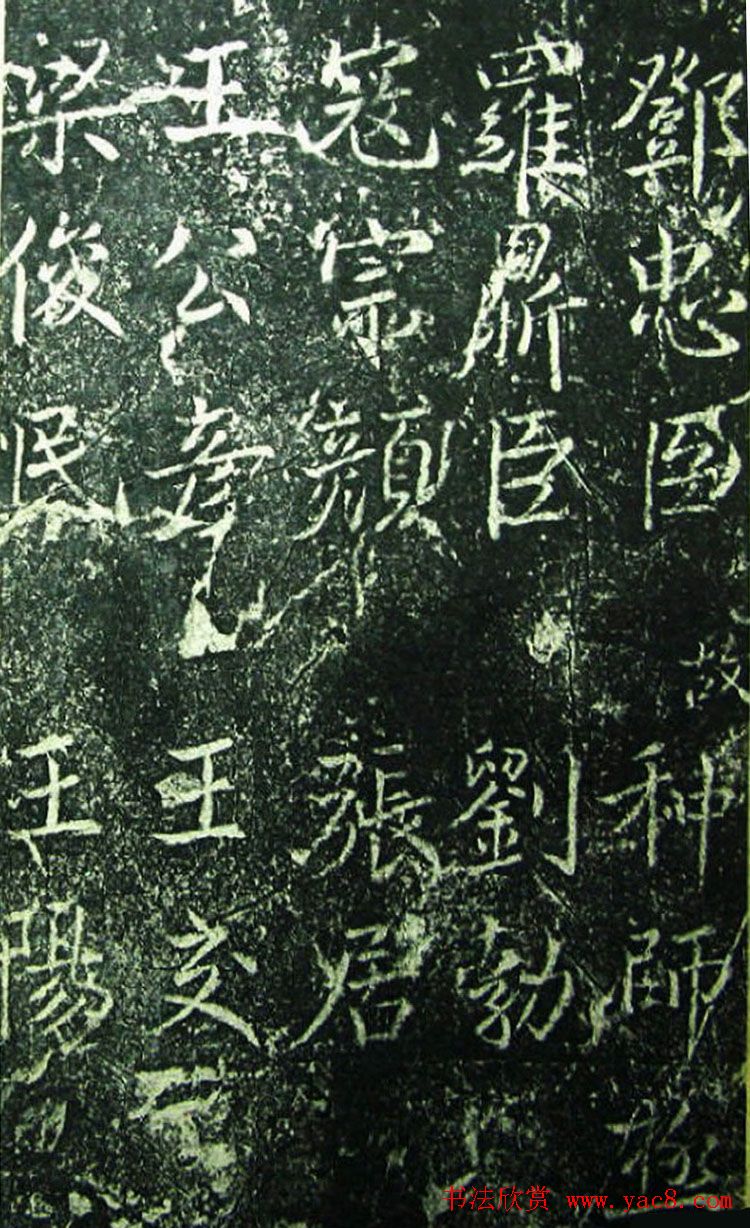 鄧忠国 故 种師極
羅鼎臣 劉勃
寇宗顏 張居
王公彥 王交
梁俊民 王陽
书法欣赏 www.yac8.com